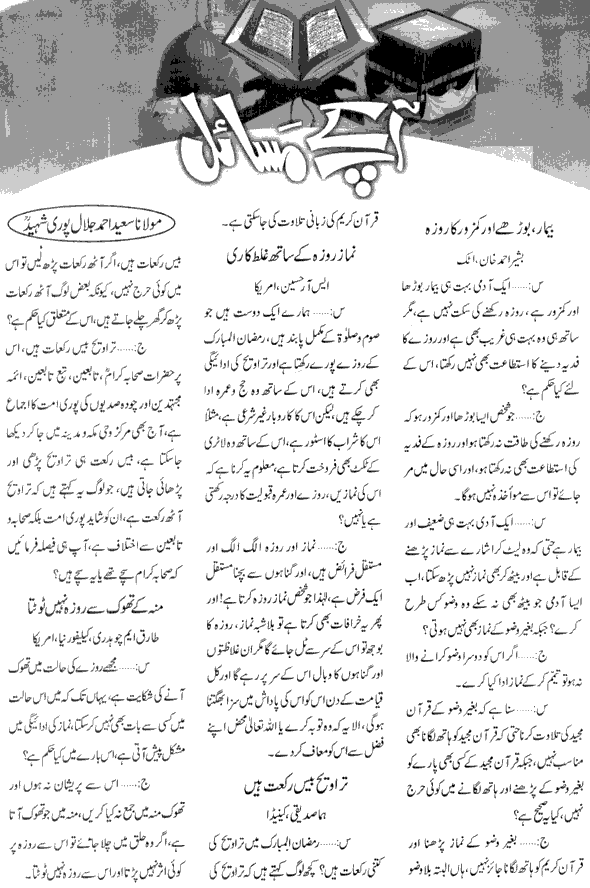 آپ کے مسائل
مولانا سعید احمد جلال پوری شہیدؒ
بیمار، بوڑھے اور کمزور کا روزہ
بشیر احمد خان، اٹک
س:...... ایک آدمی بہت ہی بیمار بوڑھا
اور کمزور ہے، روزہ رکھنے کی سکت نہیں ہے، مگر
ساتھ ہی وہ بہت ہی غریب بھی ہے اور روزے کا
فدیہ دینے کا استطاعت بھی نہیں رکھتا، اس کے
لئے کیا حکم ہے؟
ج:...... جو شخص ایسا بوڑھا اور کمزور ہو کہ
روزہ رکھنے کی طاقت نہ رکھتا ہو اور روزے کے فدیہ
کی استطاعت بھی نہ رکھتا ہو، اور اسی حال میں مر
جائے تو اس سے مواخذہ نہیں ہوگا۔
س:...... ایک آدمی بہت ہی ضعیف اور
بیمار ہے حتی کہ وہ لیٹ کر اشارے سے نماز پڑھنے
کے قابل ہے اور بیٹھ کر بھی نماز نہیں پڑھ سکتا، اب
ایسا آدمی جو بیٹھ بھی نہ سکے وہ وضو کس طرح
کرے؟ جبکہ بغیر وضو کے نماز بھی نہیں ہوتی؟
ج:...... اگر اس کو دوسرا وضو کرانے والا
نہ ہو تو تیمّم کر کے نماز ادا کیا کرے۔
س:...... سنا ہے کہ بغیر وضو کے قرآن
مجید کی تلاوت کرنا حتی کہ قرآن مجید کو ہاتھ لگانا بھی
مناسب نہیں، جبکہ قرآن مجید کے کسی بھی پارے کو
بغیر وضو کے پڑھنے اور ہاتھ لگانے میں کوئی حرج
نہیں، کیا یہ صحیح ہے؟
ج:...... بغیر وضو کے نماز پڑھنا اور
قرآن کریم کو ہاتھ لگانا جائز نہیں، ہاں البتہ بلا وضو
قرآن کریم کی زبانی تلاوت کی جاسکتی ہے۔
نماز روزہ کے ساتھ غلط کاری
ایس آر حسین، امریکا
س:...... ہمارے ایک دوست ہیں جو
صوم و صلوٰۃ کے مکمل پابند ہیں، رمضان المبارک
کے روزے پورے رکھتا ہے اور تراویح کی ادائیگی
بھی کرتے ہیں، اس کے ساتھ وہ حج و عمرہ ادا
کر چکے ہیں، لیکن اس کا کاروبار غیر شرعی ہے، مثلاً
اس کا شراب کا اسٹور ہے، اس کے ساتھ وہ لاٹری
کے ٹکٹ بھی فروخت کرتا ہے، معلوم یہ کرنا ہے کہ
اس کی نمازیں، روزے اور عمرہ قبولیت کا درجہ رکھتی
ہے یا نہیں؟
ج:...... نماز اور روزہ الگ الگ اور
مستقل فرائض ہیں، اور گناہوں سے بچنا مستقل
ایک فرض ہے، لہٰذا جو شخص نماز روزہ کرتا ہے! اور
پھر یہ خرافات بھی کرتا ہے تو بلاشبہ نماز، روزہ کا
بوجھ تو اس کے سر سے ٹل جائے گا مگر ان غلاظتوں
اور گناہوں کا وبال اس کے سر پر رہے گا اور کل
قیامت کے دن اس کو اس کی پاداش میں سزا بھگتنا
ہوگی، الا یہ کہ وہ توبہ کرے یا اللہ تعالیٰ محض اپنے
فضل سے اس کو معاف کردے۔
تراویح بیس رکعت ہیں
ہما صدیقی، کینیڈا
س:...... رمضان المبارک میں تراویح کی
کتنی رکعات ہیں؟ کچھ لوگ کہتے ہیں کہ تراویح کی
بیس رکعات ہیں، اگر آٹھ رکعات پڑھ لیں تو اس
میں کوئی حرج نہیں، کیونکہ بعض لوگ آٹھ رکعات
پڑھ کر گھر چلے جاتے ہیں، اس کے متعلق کیا حکم ہے؟
ج:...... تراویح بیس رکعات ہیں، اس
پر حضرات صحابہ کرامؓ، تابعین، تبع تابعین، ائمہ
مجتہدین اور چودہ صدیوں کی پوری امت کا اجماع
ہے، آج بھی مرکز وحی مکہ و مدینہ میں جا کر دیکھا
جاسکتا ہے، بیس رکعت ہی تراویح پڑھی اور
پڑھائی جاتی ہیں، جو لوگ یہ کہتے ہیں کہ تراویح
آٹھ رکعت ہے، ان کو شاید پوری امت بلکہ صحابہ و
تابعین سے اختلاف ہے، آپ ہی فیصلہ فرمائیں
کہ صحابہ کرام سچے تھے یا یہ سچے ہیں؟
منہ کے تھوک سے روزہ نہیں ٹوٹتا
طارق ایم چوہدری، کیلیفورنیا، امریکا
س:...... مجھے روزے کی حالت میں تھوک
آنے کی شکایت ہے، یہاں تک کہ میں اس حالت
میں کسی سے بات بھی نہیں کرسکتا، نماز کی ادائیگی میں
مشکل پیش آتی ہے، اس بارے میں کیا حکم ہے؟
ج:...... اس سے پریشان نہ ہوں اور
تھوک منہ میں جمع نہ کیا کریں، منہ میں جو تھوک آتا
ہے، اگر وہ حلق میں چلا جائے تو اس سے روزہ پر
کوئی اثر نہیں پڑتا اور اس سے روزہ نہیں ٹوٹتا۔